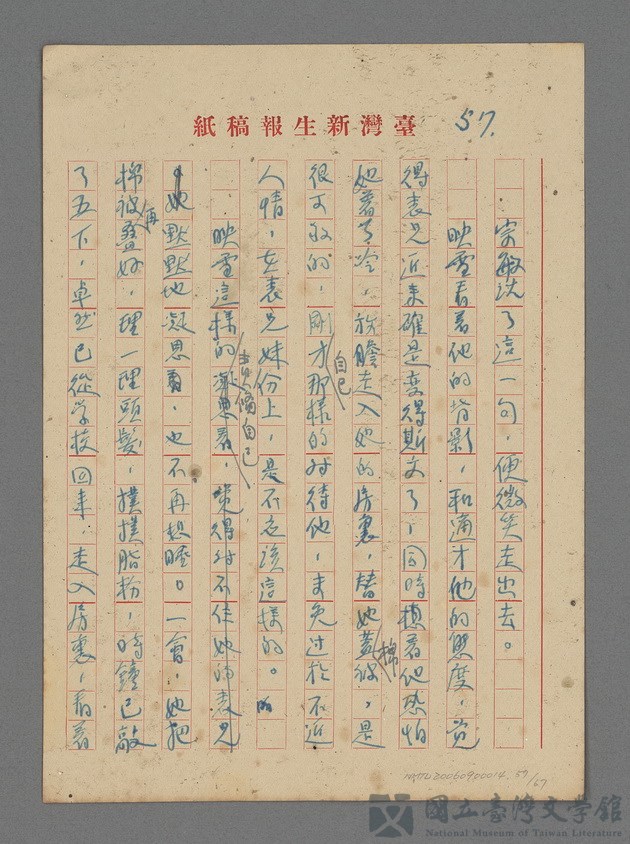 臺灣新生報稿紙
57.
宗敏說了這一句,便微笑走出去。
映雪看着他的背影,和適才他的態度,覺
得表兄近來確是變得斯文了,同時想着他恐怕
她着了冷,放膽走入她的房裏,替她蓋棉被,是
很可敬的,剛才自己那樣的對待他,未免过於不近
人情,在表兄妹份上,是不應該這樣的。
映雪這樣的凝思着,覺得对不住她的表兄
責備自己
她默默地凝思着,也不再想睡。一會,她把
棉被再疊好,理一理頭髮,撲撲脂粉,時鐘已敲
了五下,卓然已從学校回来,走入房裏,看着
NMTL20060900014_57/67
國立臺灣文學館
National Museum of Taiwan Literature